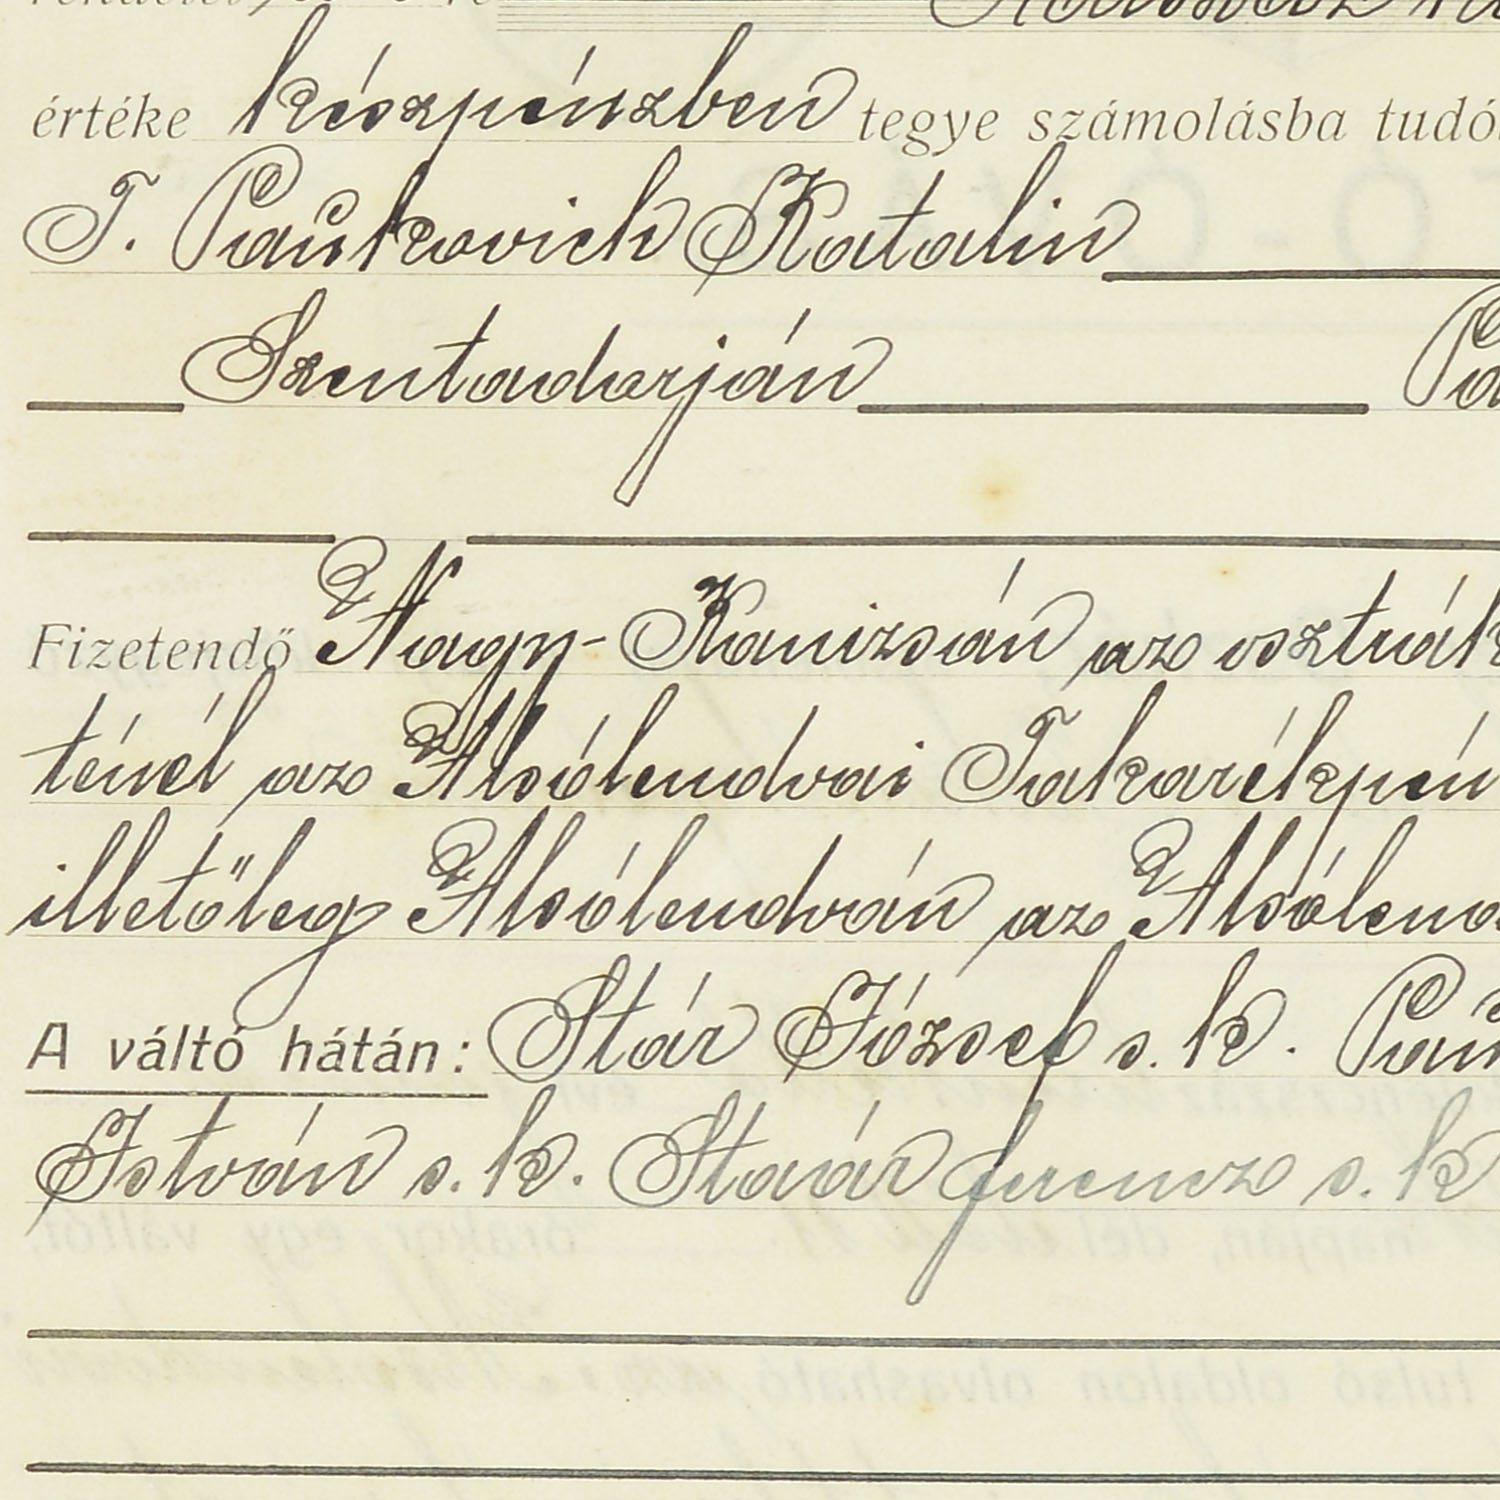 értéke készpénzben tegye számolásba tudó
T. Paukovich Katalin
Szentadorján Pa
Fizetendő Nagy-Kanizsán az osztrák
ténél az Alsólendvai Takarékpén
illetőleg Alsólendván az Alsólend
A váltó hátán: Stár József s. k. Pau
István s. k. Staár ferencz s. k